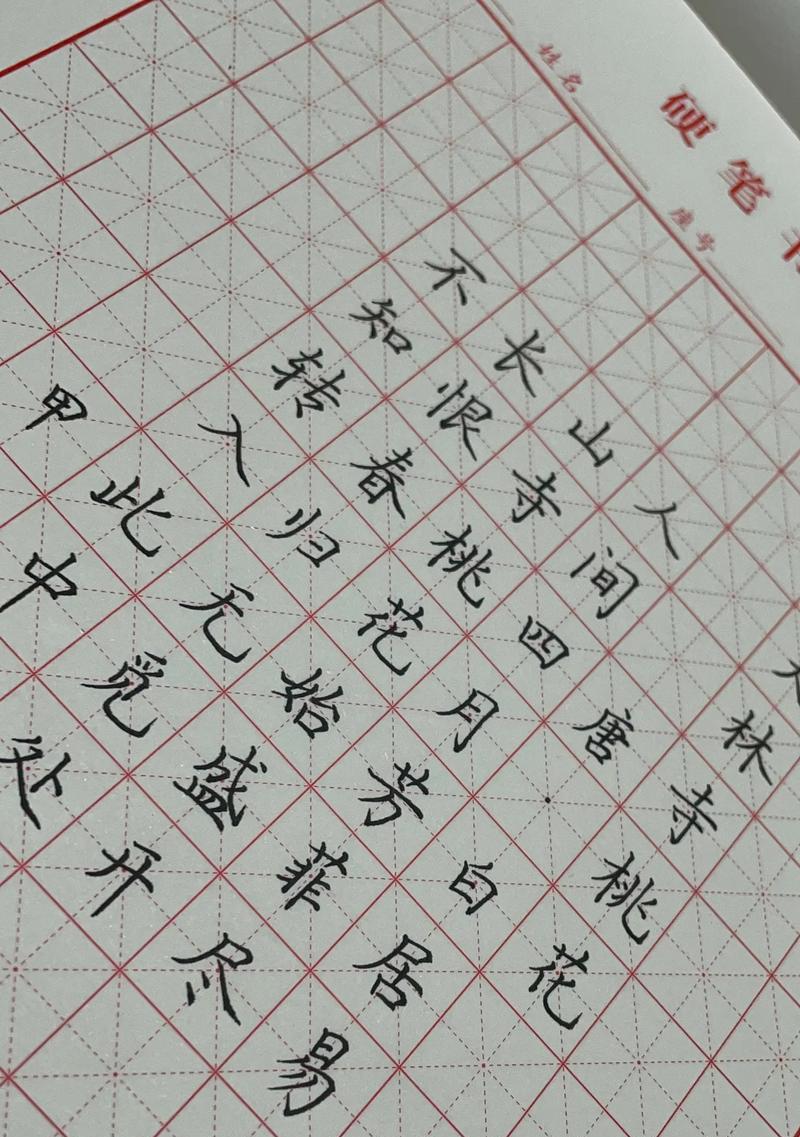 硬笔
姓名
座号
林寺桃花
唐·白居易
人间四月芳菲尽
山寺桃花始盛开
长恨春归无觅处
不知转入此中
甲